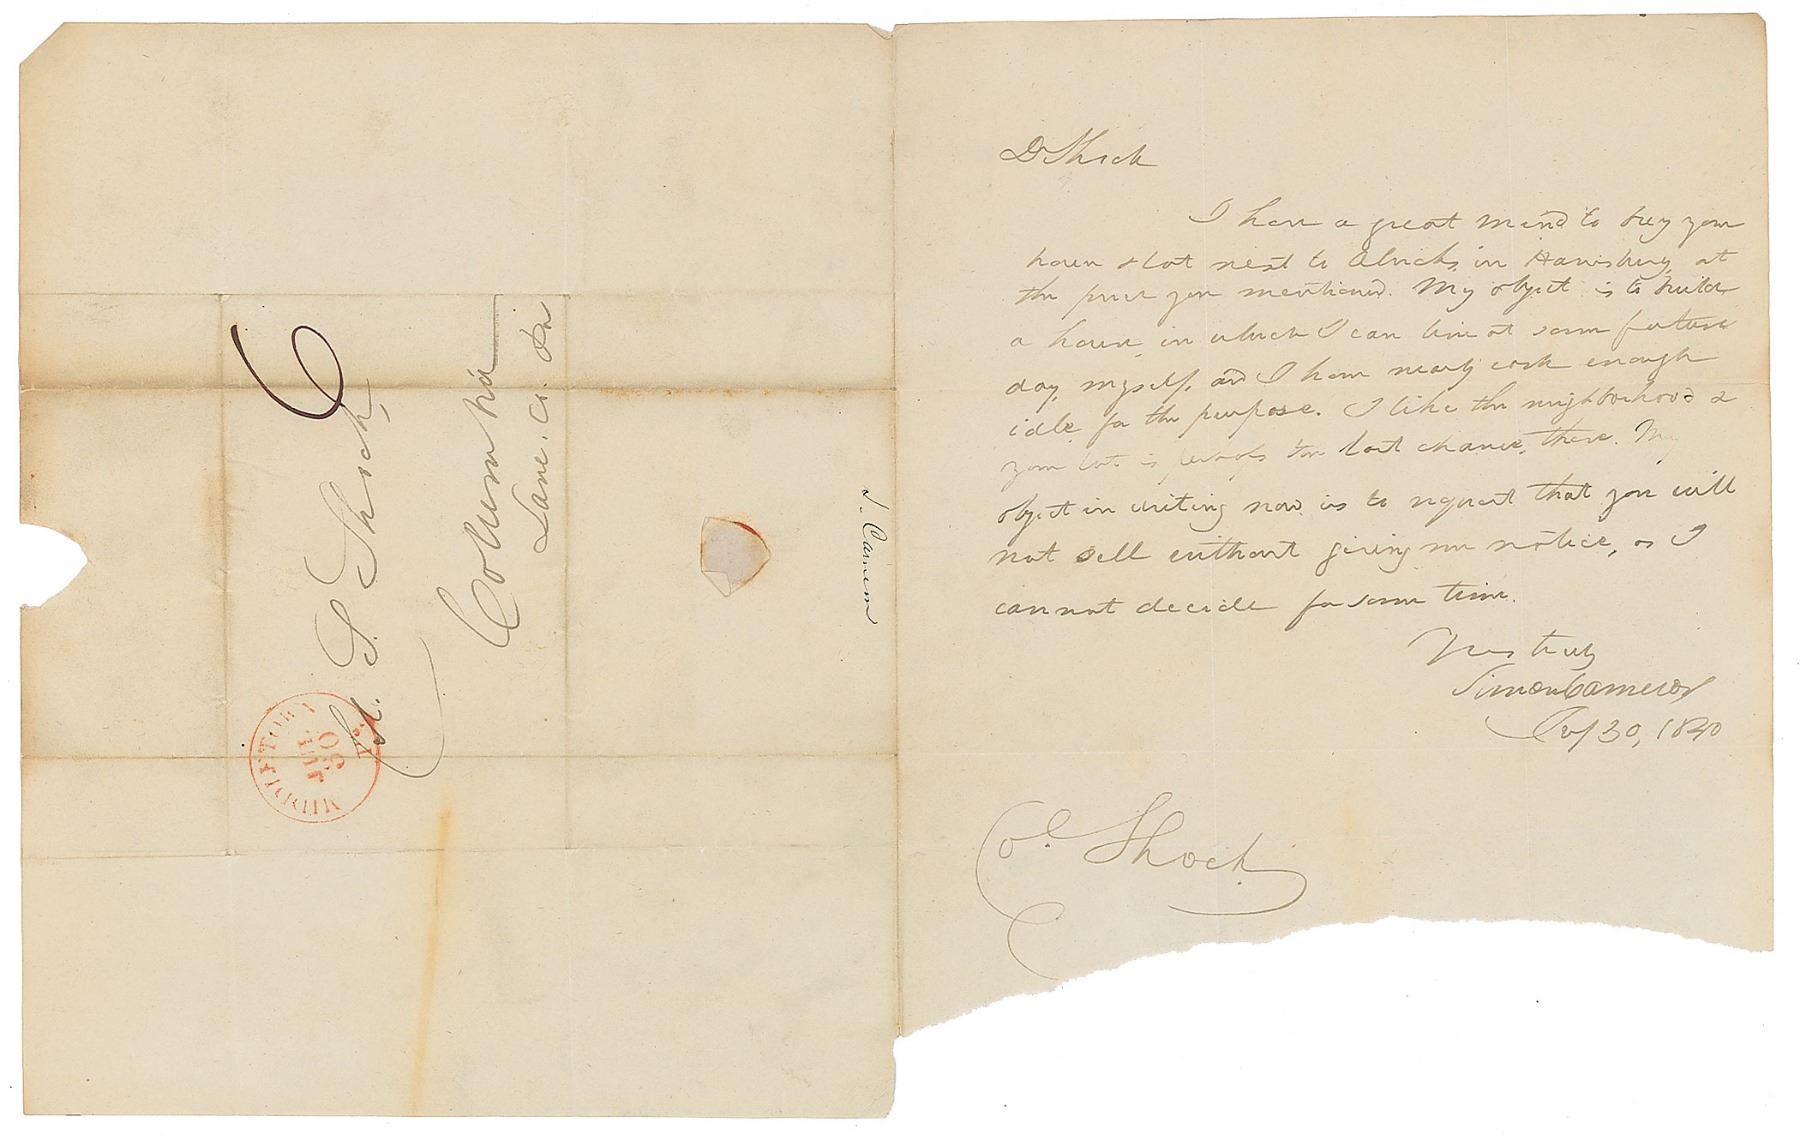 Dr Shock
I have a great mind to buy your
house & lot next to Alricks, in Harrisburg, at
the price you mentioned. My object is to build
a house, in which I can live at some future
day, myself, and I have nearly cash enough
idle, for the purpose. I like the neighborhood &
your lot is perhaps the last chance, there. My
object in writing now is to request that you will
not sell without giving me notice, as I
cannot decide for some time.
Yours truly
Simon Cameron
30, 1840
Col. Shock
S. Cameron
6
S. Shock,
Columbia
Lanc. Co. Pa
MIDDLETOWN
JUL
30